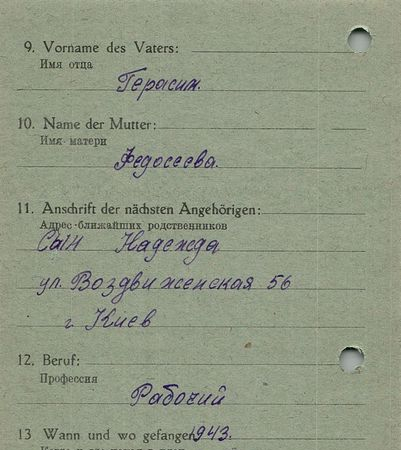 9. Vorname des Vaters:
Имя отца
Герасим.
10. Name der Mutter:
Имя матери
Федосеева.
11. Anschrift der nächsten Angehörigen:
Адрес ближайших родственников
Сын Надежда
ул. Воздвиженская 56
г. Киев
12. Beruf:
Профессия
Рабочий
13 Wann und wo gefangen 1943.